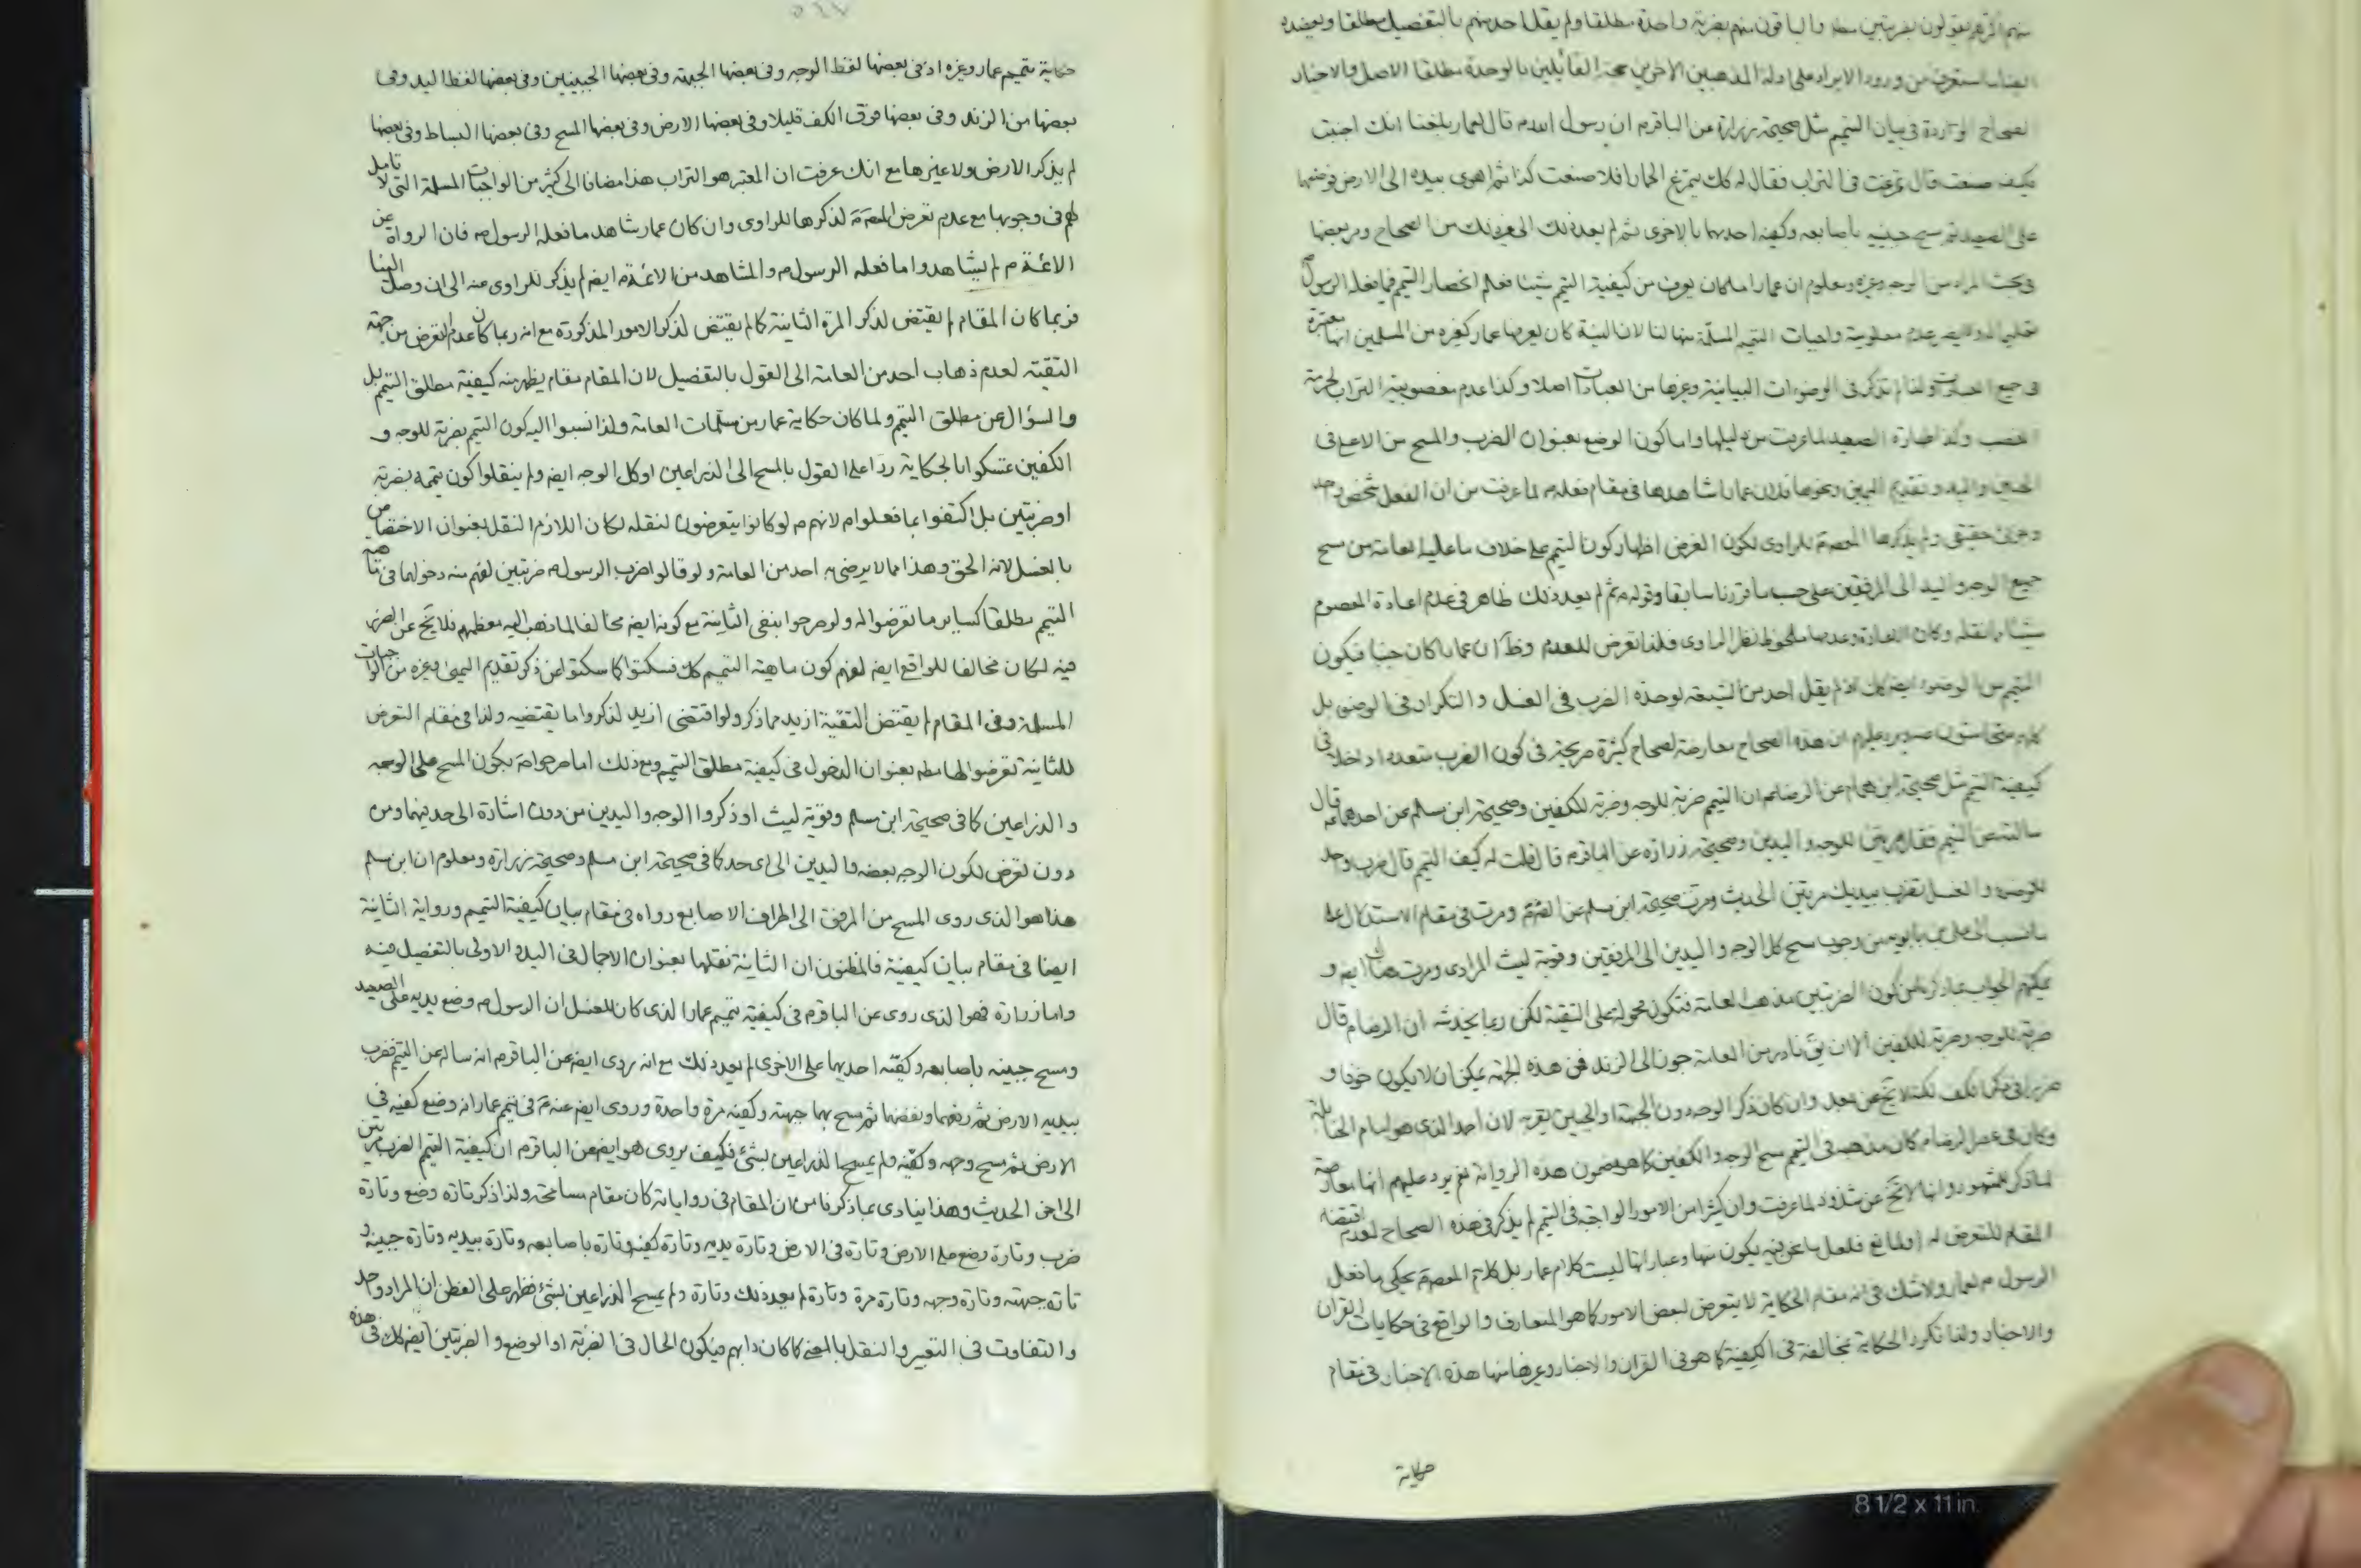 منهم اكثرهم يقولون بضربتين مطلقا والباقون منهم بضربة واحدة مطلقا ولم يقل احد منهم بالتفصيل مطلقا ويعضده
ايضا ما ستعرف من ورود الايراد على ادلة المذهبين الاخرين حجة القائلين بالوحدة مطلقا الاصل والاخبار
الصحاح الواردة في بيان التيمم مثل صحيحة زرارة عن الباقر م ان رسول الله م قال لعمار بلغنا انك اجنبت
فكيف صنعت قال تمرغت في التراب فقال له كك يتمرغ الحمار افلا صنعت كذا ثم اهوى بيده الى الارض فوضعها
على الصعيد ثم مسح جبينه باصابعه وكفيه احديهما بالاخرى ثم لم يعد ذلك الى غير ذلك من الصحاح ومر بعضها
في بحث المراد من الوجه وغيره ومعلوم ان عمارا ما كان يعرف من كيفية التيمم شيئا فعلم انحصار التيمم فيما فعله الرسول ص
تعليما له ولا يضر عدم معلومية واجبات التيمم المسلمة منها لنا لان النية كان يعرفها عمار كغيره من المسلمين انها معتبرة
في جميع العبادات ولذا لم تذكر في الوضوءات البيانية وغيرها من العبادات اصلا وكذا عدم مغصوبية التراب لحرمة
الغصب وكذا طهارة الصعيد لما عرفت من دليلها واما كون الوضع بعنوان الضرب والمسح من الاعلى في
الجبين واليد وتقديم اليمين ونحوها فلان عمارا شاهدها في مقام فعله م لما عرفت من ان الفعل شخص واحد
وجزئي حقيقي ولم يذكرها المعصوم للراوي لكون الغرض اظهار كون التيمم على خلاف ما عليه العامة من مسح
جميع الوجه واليد الى المرفقين على حسب ما قررنا سابقا وقوله م ثم لم يعد ذلك ظاهر في عدم اعادة المعصوم
شيئا مما نقله وكان الاعادة وعدمها ملحوظ نظر الراوي فلذا تعرض للعدم وظ ان عمارا كان جنبا فيكون
التيمم من الوضوء ايضا كك اذ لم يقل احد من الشيعة لوحدة الضرب في الغسل والتكرار في الوضوء بل
كيفية التيمم مثل صحيحة ابن همام عن الرضا م ان التيمم ضربة للوجه وضربة للكفين وصحيحة ابن مسلم عن احدهما ع قال
سالته عن التيمم فقال مرتين للوجه واليدين وصحيحة زرارة عن الباقر م قال قلت له كيف التيمم قال ضرب واحد
للوضوء والغسل تضرب بيديك مرتين الحديث ومرت صحيحة ابن مسلم عن الصم ومرت في مقام الاستدلال على
ما نسب الى علي بن بابويه من وجوب مسح كل الوجه واليدين الى المرفقين وقوية ليث المرادي ومرت هناك ايضا و
يمكنهم الجواب بما ذكرنا من كون الضربتين مذهب العامة فتكون محمولة على التقية لكن ربما يخدشه ان الرضا م قال
ضربة للوجه وضربة للكفين الا ان يق نادر من العامة
وكان في عصر الرضا م كان مذهبه في التيمم مسح الوجه والكفين كما هو مضمون هذه الرواية نعم يرد عليهم انها معارضة
لما ذكر للمشهور وانها لا تخ عن شذوذ لما عرفت وان كثيرا من الامور الواجبة في التيمم لم يذكر في هذه الصحاح لعدم اقتضاء
المقام للتعرض له او لمانع فلعل ما نحن فيه يكون منها وعباراتها ليست كلام عمار بل كلام المعصوم يحكي ما فعل
الرسول م لعمار ولا شك في انه مقام الحكاية لا يتعرض لبعض الامور كما هو المتعارف والواقع في حكايات القران
والاخبار ولذا تكرر الحكاية مخالفة في الكيفية كما هو في القران والاخبار وغيرها منها هذه الاخبار في مقام
حكاية
٥٦٧
حكاية تتميم عمار وغيره اذ في بعضها لفظ الوجه وفي بعضها الجبهة وفي بعضها الجبينين وفي بعضها لفظ اليد وفي
بعضها من الزند وفي بعضها فوق الكف قليلا وفي بعضها الارض وفي بعضها المسح وفي بعضها البساط وفي بعضها
لم يذكر الارض ولا غيرها مع انك عرفت ان المعتبر هو التراب هذا مضافا الى كثير من الواجبات المسلمة التي لا تامل
لهم في وجوبها مع عدم تعرض المعصوم لذكرها للراوي وان كان عمار شاهد ما فعله الرسول م فان الرواة عن
الائمة م لم يشاهدوا ما فعله الرسول م والمشاهد من الائمة م ايضا لم يذكر للراوي عنه الى ان وصل الينا
فربما كان المقام لم يقتض لذكر المرة الثانية كما لم يقتض لذكر الامور المذكورة مع انه ربما كان عدم التعرض من جهة
التقية لعدم ذهاب احد من العامة الى القول بالتفصيل لان المقام مقام يظهر منه كيفية مطلق التيمم بل
والسؤال عن مطلق التيمم ولما كان حكاية عمار من مسلمات العامة ولذا نسبوا اليه كون التيمم بضربة للوجه و
الكفين تمسكوا بالحكاية ردا على القول بالمسح الى الذراعين او كل الوجه ايضا ولم ينقلوا كون تيممه بضربة
او ضربتين بل اكتفوا بما فعلوا م لانهم م لو كانوا يتعرضون لنقله لكان اللازم النقل بعنوان الاختصاص
بالغسل لانه الحق وهذا مما لا يرضى به احد من العامة ولو قالوا ضرب الرسول م ضربتين لفهم منه دخولهما في ماهية
التيمم مطلقا كساير ما تعرضوا له ولو صرحوا بنفي الثانية مع كونه ايضا مخالفا لما ذهب اليه معظمهم فلا يخ عن الضرر
فيه لكان مخالفا للواقع ايضا لفهم كون ماهية التيمم كك فسكتوا كما سكتوا عن ذكر تقديم اليمنى وغيره من الواجبات
المسلمة وفي المقام لم يقتض التقية ازيد مما ذكر ولو اقتضى ازيد لذكروا ما يقتضيه ولذا في مقام التعرض
للثانية تعرضوا لها مطلقا بعنوان الدخول في كيفية مطلق التيمم ومع ذلك اما صرحوا م بكون المسح على الوجه
والذراعين كما في صحيحة ابن مسلم وقوية ليث او ذكروا الوجه واليدين من دون اشارة الى حديهما ومن
دون تعرض لكون الوجه بعضه واليدين الى اي حد كما في صحيحة ابن مسلم وصحيحة زرارة ومعلوم ان ابن مسلم
هذا هو الذي روى المسح من المرفق الى اطراف الاصابع رواه في مقام بيان كيفية التيمم ورواية الثانية
ايضا في مقام بيان كيفية فالمظنون ان الثانية نقلها بعنوان الاجمال في اليد والاولى بالتفصيل فيه
واما زرارة فهو الذي روى عن الباقر م في كيفية تتميم عمار الذي كان للغسل ان الرسول م وضع يديه على الصعيد
ومسح جبينه باصابعه وكفيه احديهما على الاخرى لم يعد ذلك مع انه روى ايضا عن الباقر م انه ساله عن التيمم فضرب
بيديه الارض ثم رفعهما ونفضهما ثم مسح بهما جبهته وكفيه مرة واحدة وروى ايضا عنه م في تيمم عمار انه وضع كفيه في
الارض ثم مسح وجهه وكفيه ولم يمسح الذراعين بشئ فكيف يروى هو ايضا عن الباقر م ان كيفية التيمم الضرب مرتين
الى اخر الحديث وهذا ينادي بما ذكرنا من ان المقام في رواياته كان مقام مسامحة ولذا ذكر تارة وضع وتارة
ضرب وتارة وضع على الارض وتارة في الارض وتارة يديه وتارة كفيه وتارة باصابعه وتارة بيديه وتارة جبينه و
تارة جبهته وتارة وجهه وتارة مرة وتارة لم يعد ذلك وتارة ولم يمسح الذراعين بشئ فظهر على الفطن ان المراد واحد
والتفاوت في التعبير والنقل بالمعنى كما كان دابهم فيكون الحال في الضربة او الوضع والضربتين ايضا كك في هذه
8 1/2 x 11 in.